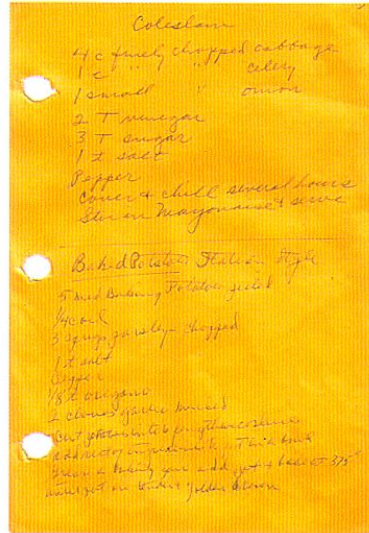 Coleslaw
4 c finely chopped cabbage
1 c " " celery
1 small " onion
2 T vinegar
3 T sugar
1 t salt
Pepper
Cover & chill several hours
Stir in Mayonaise & serve
Baked Potatoes Italian Style
5 med Baking Potatoes peeled
1/4 c oil
3 sprigs parsley - chopped
1 t salt
Pepper
1/8 t oregano
2 cloves garlic minced
Cut potatoes into lengthwise
add rest of ingredients
Grease baking pan and put & bake at 375°
until potatoes tender golden brown